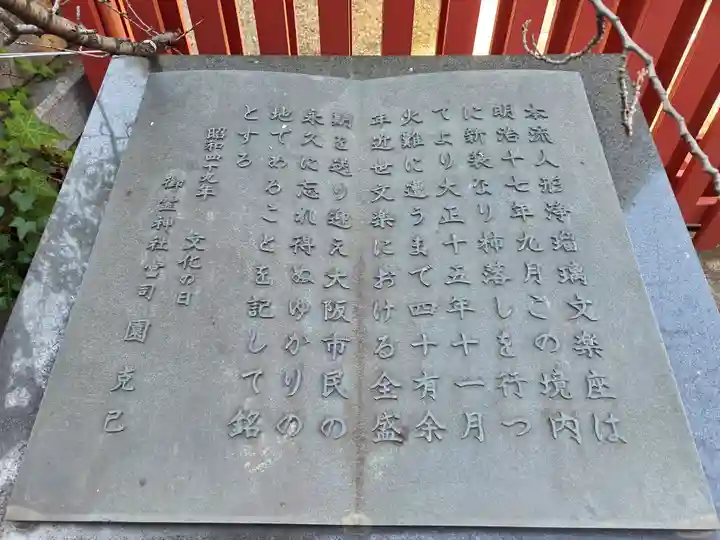 本流人形浄瑠璃文楽座は
明治十七年九月この境内
に新装なり杮落しを行つ
てより大正十五年十一月
火難に遭うまで四十有余
年近世文楽における全盛
期を送り迎え大阪市民の
永久に忘れ得ぬゆかりの
地であることを記して銘
とする
昭和四十九年 文化の日
御霊神社宮司 園克己